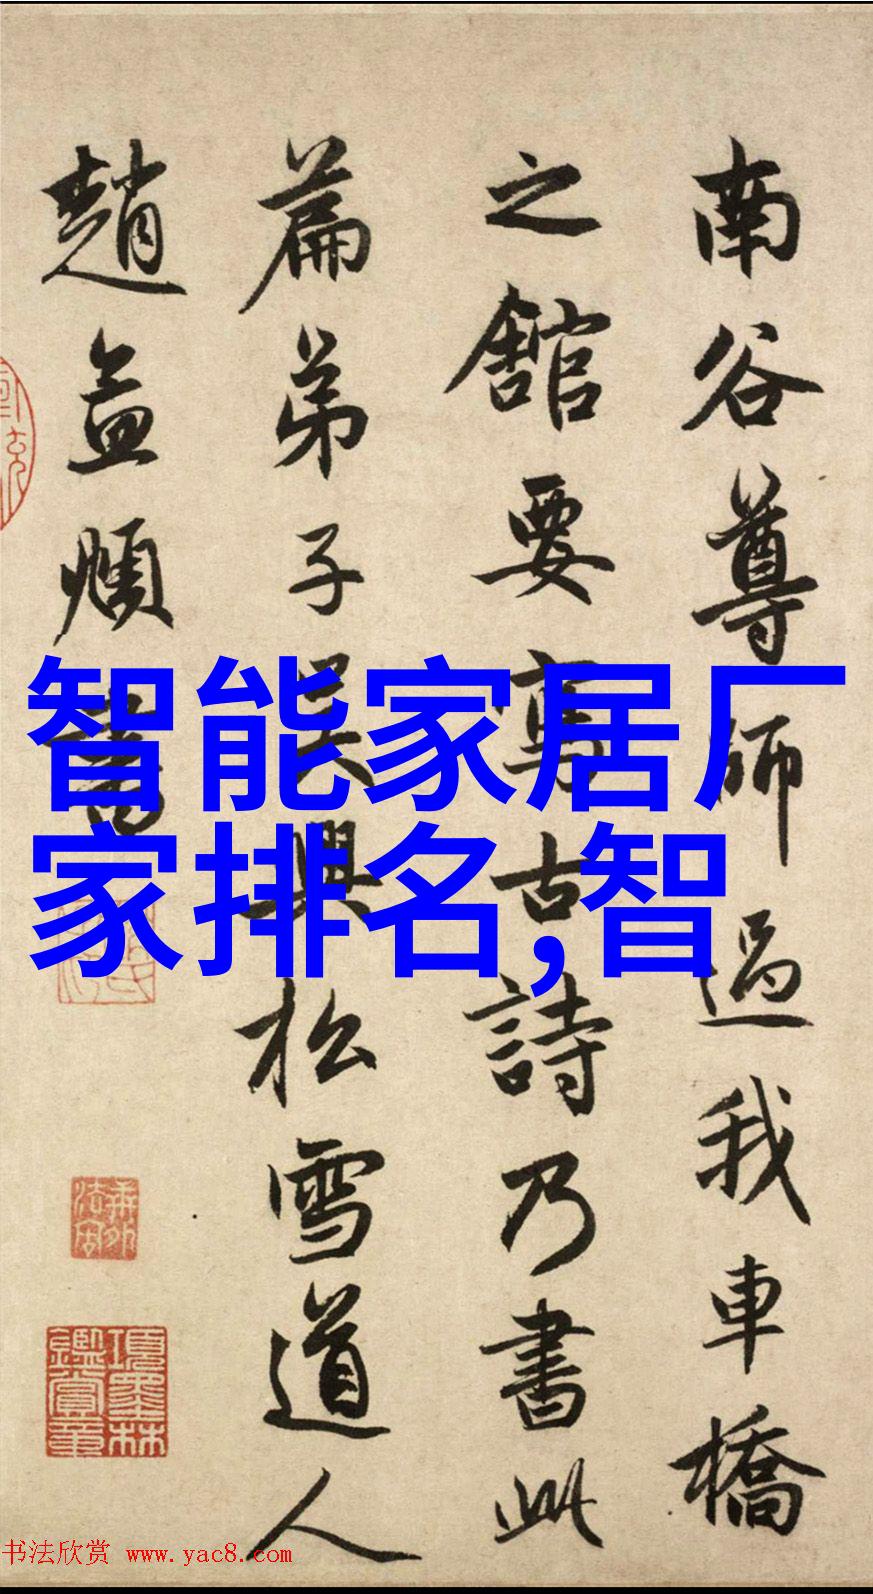 南谷尊師過我車橋
之館要寫古詩乃書此
篇弟子吳興松雪道人
趙孟頫書
智能家居厂
家排名,智
項墨林
鑑賞章
书法欣赏 www.yac8.com